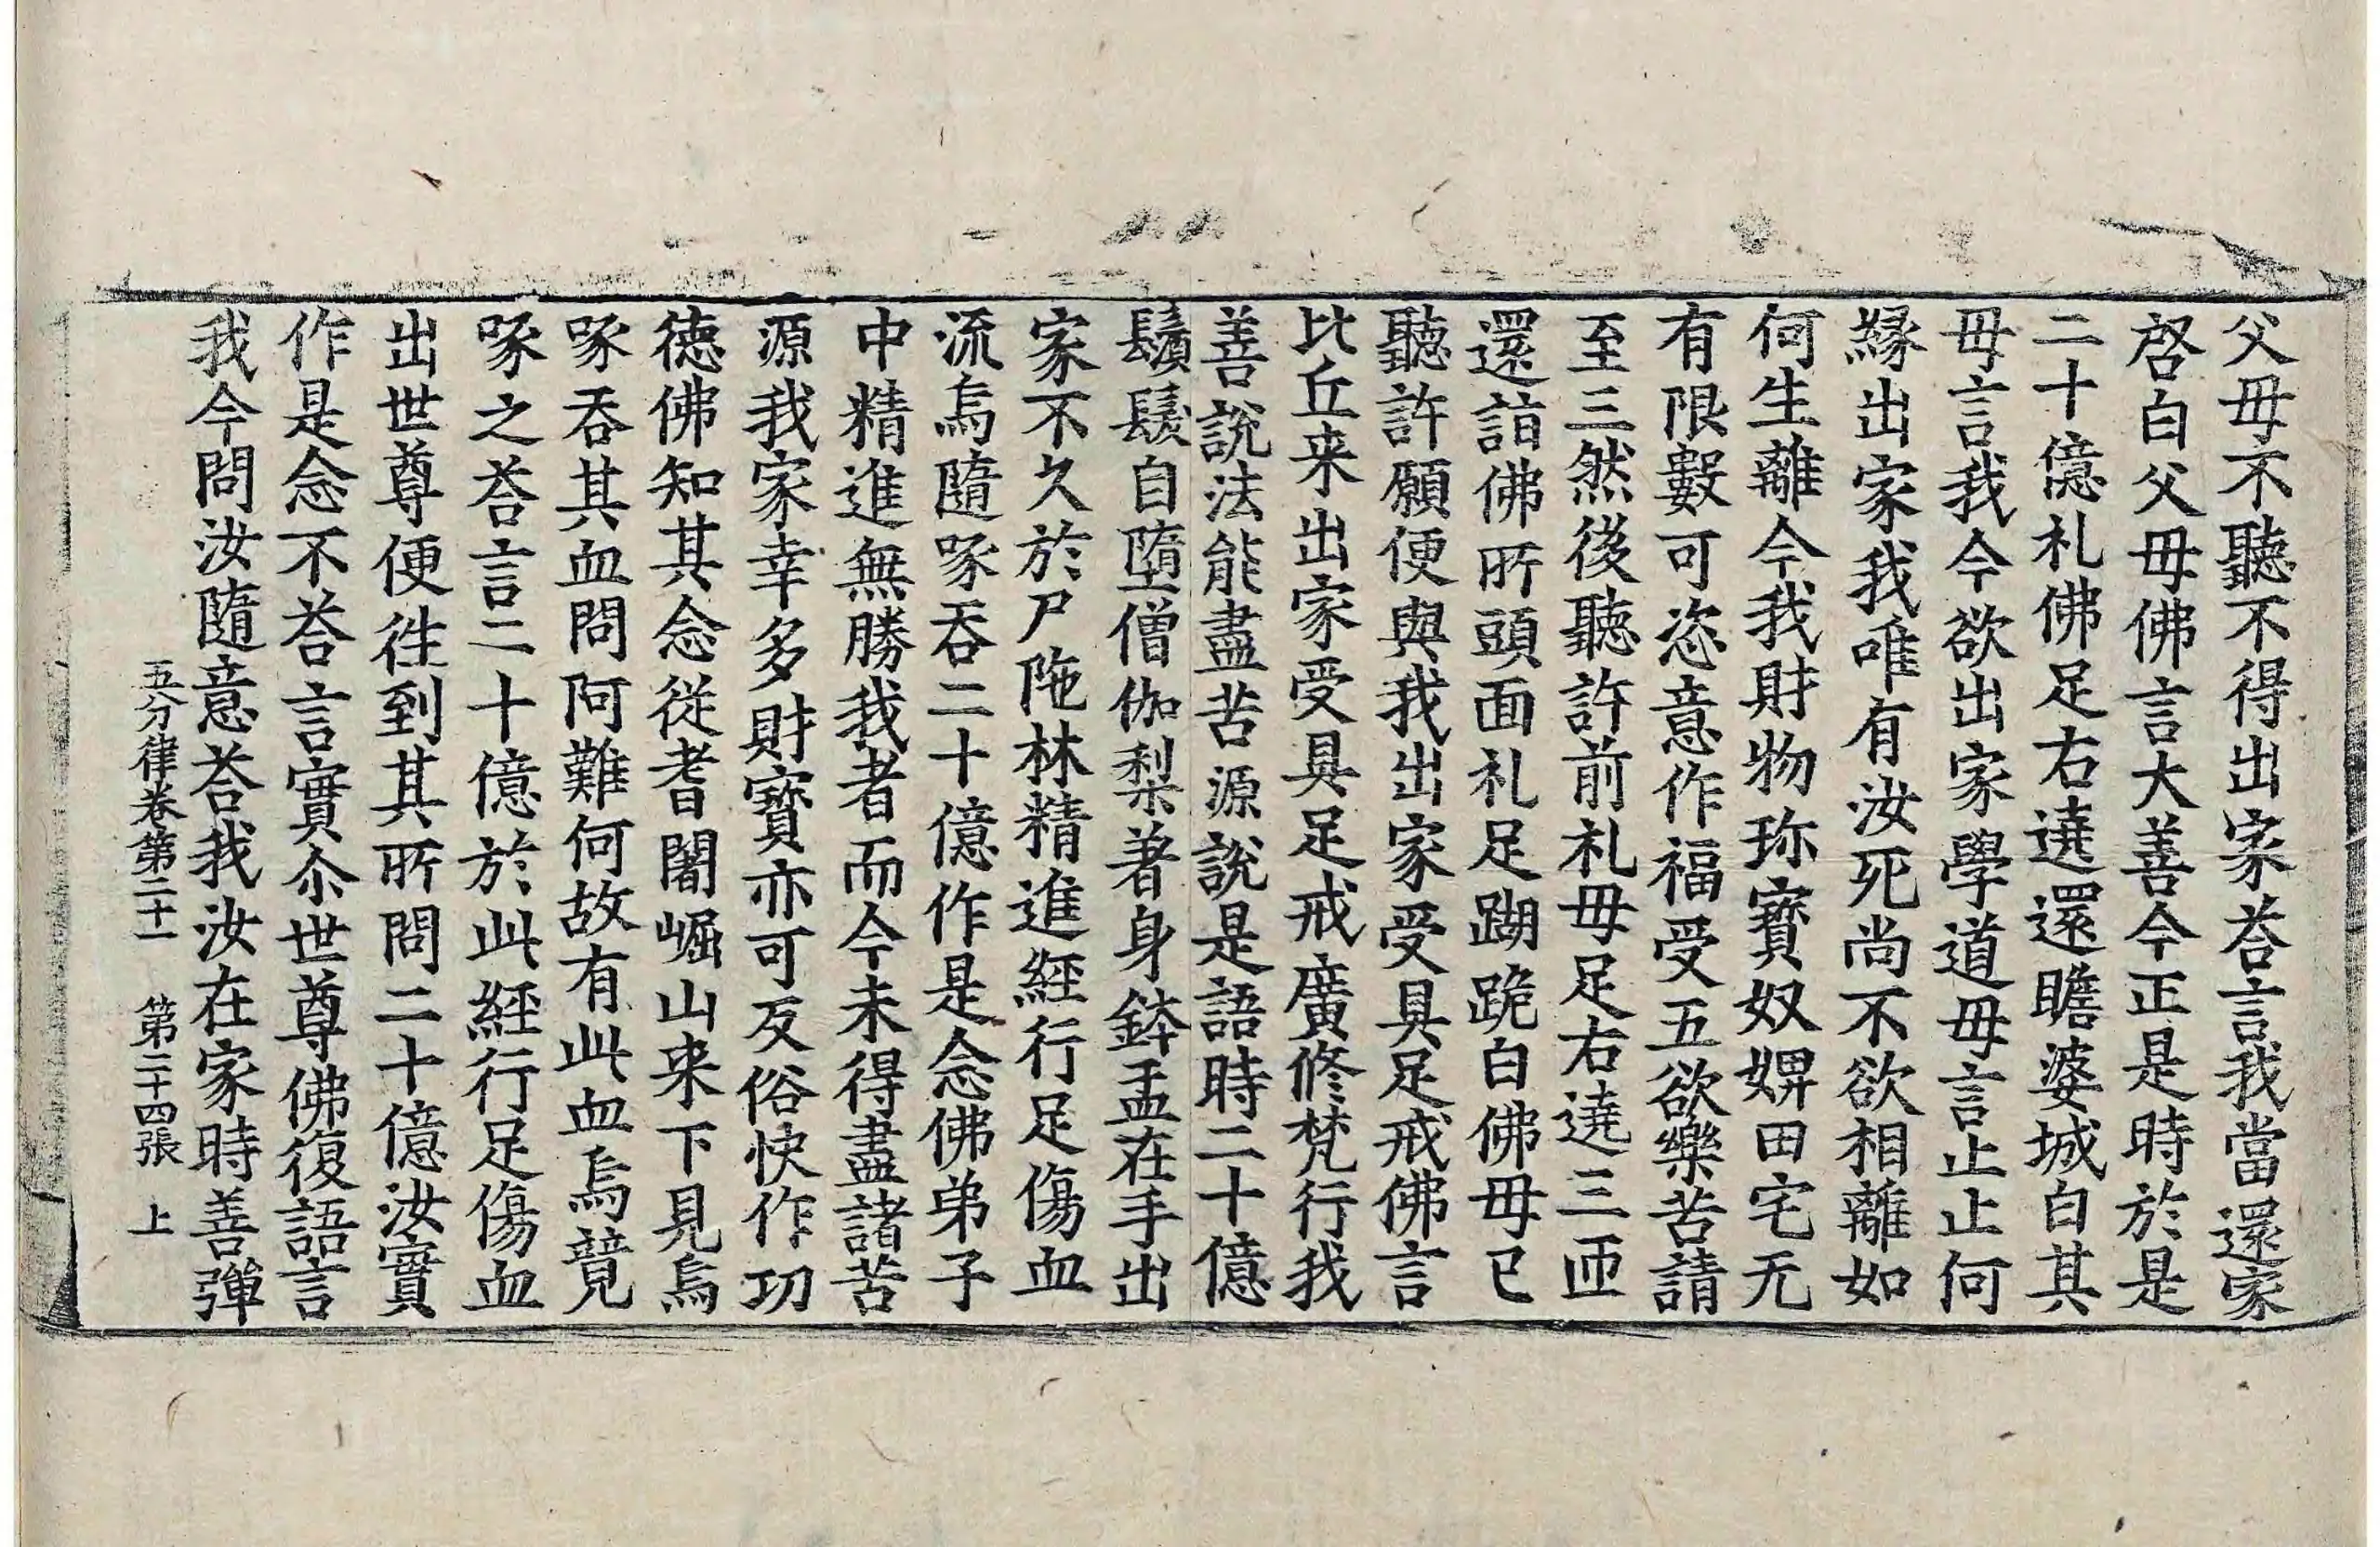 父母不聽不得出家荅言我當還家
啓白父母佛言大善今正是時於是
二十億礼佛足右遶還瞻婆城白其
母言我今欲出家學道母言止止何
縁出家我唯有汝死尚不欲相離如
何生離今我財物珎寳奴婢田宅无
有限數可恣意作福受五欲樂苦請
至三然後聽許前礼母足右遶三匝
還詣佛所頭面礼足跏跪白佛母已
聽許願便與我出家受具足戒佛言
比丘来出家受具足戒廣修梵行我
善說法能盡苦源說是語時二十億
鬚髮自墮僧伽梨著身鉢盂在手出
家不久於尸陁林精進經行足傷血
流烏隨啄吞二十億作是念佛弟子
中精進無勝我者而今未得盡諸苦
源我家幸多財寳亦可反俗快作功
徳佛知其念從耆闍崛山来下見烏
啄吞其血問阿難何故有此血烏競
啄之荅言二十億於此經行足傷血
出世尊便徃到其所問二十億汝實
作是念不荅言實尒世尊佛復語言
我今問汝隨意荅我汝在家時善彈
五分律卷第二十一 第二十四張 上